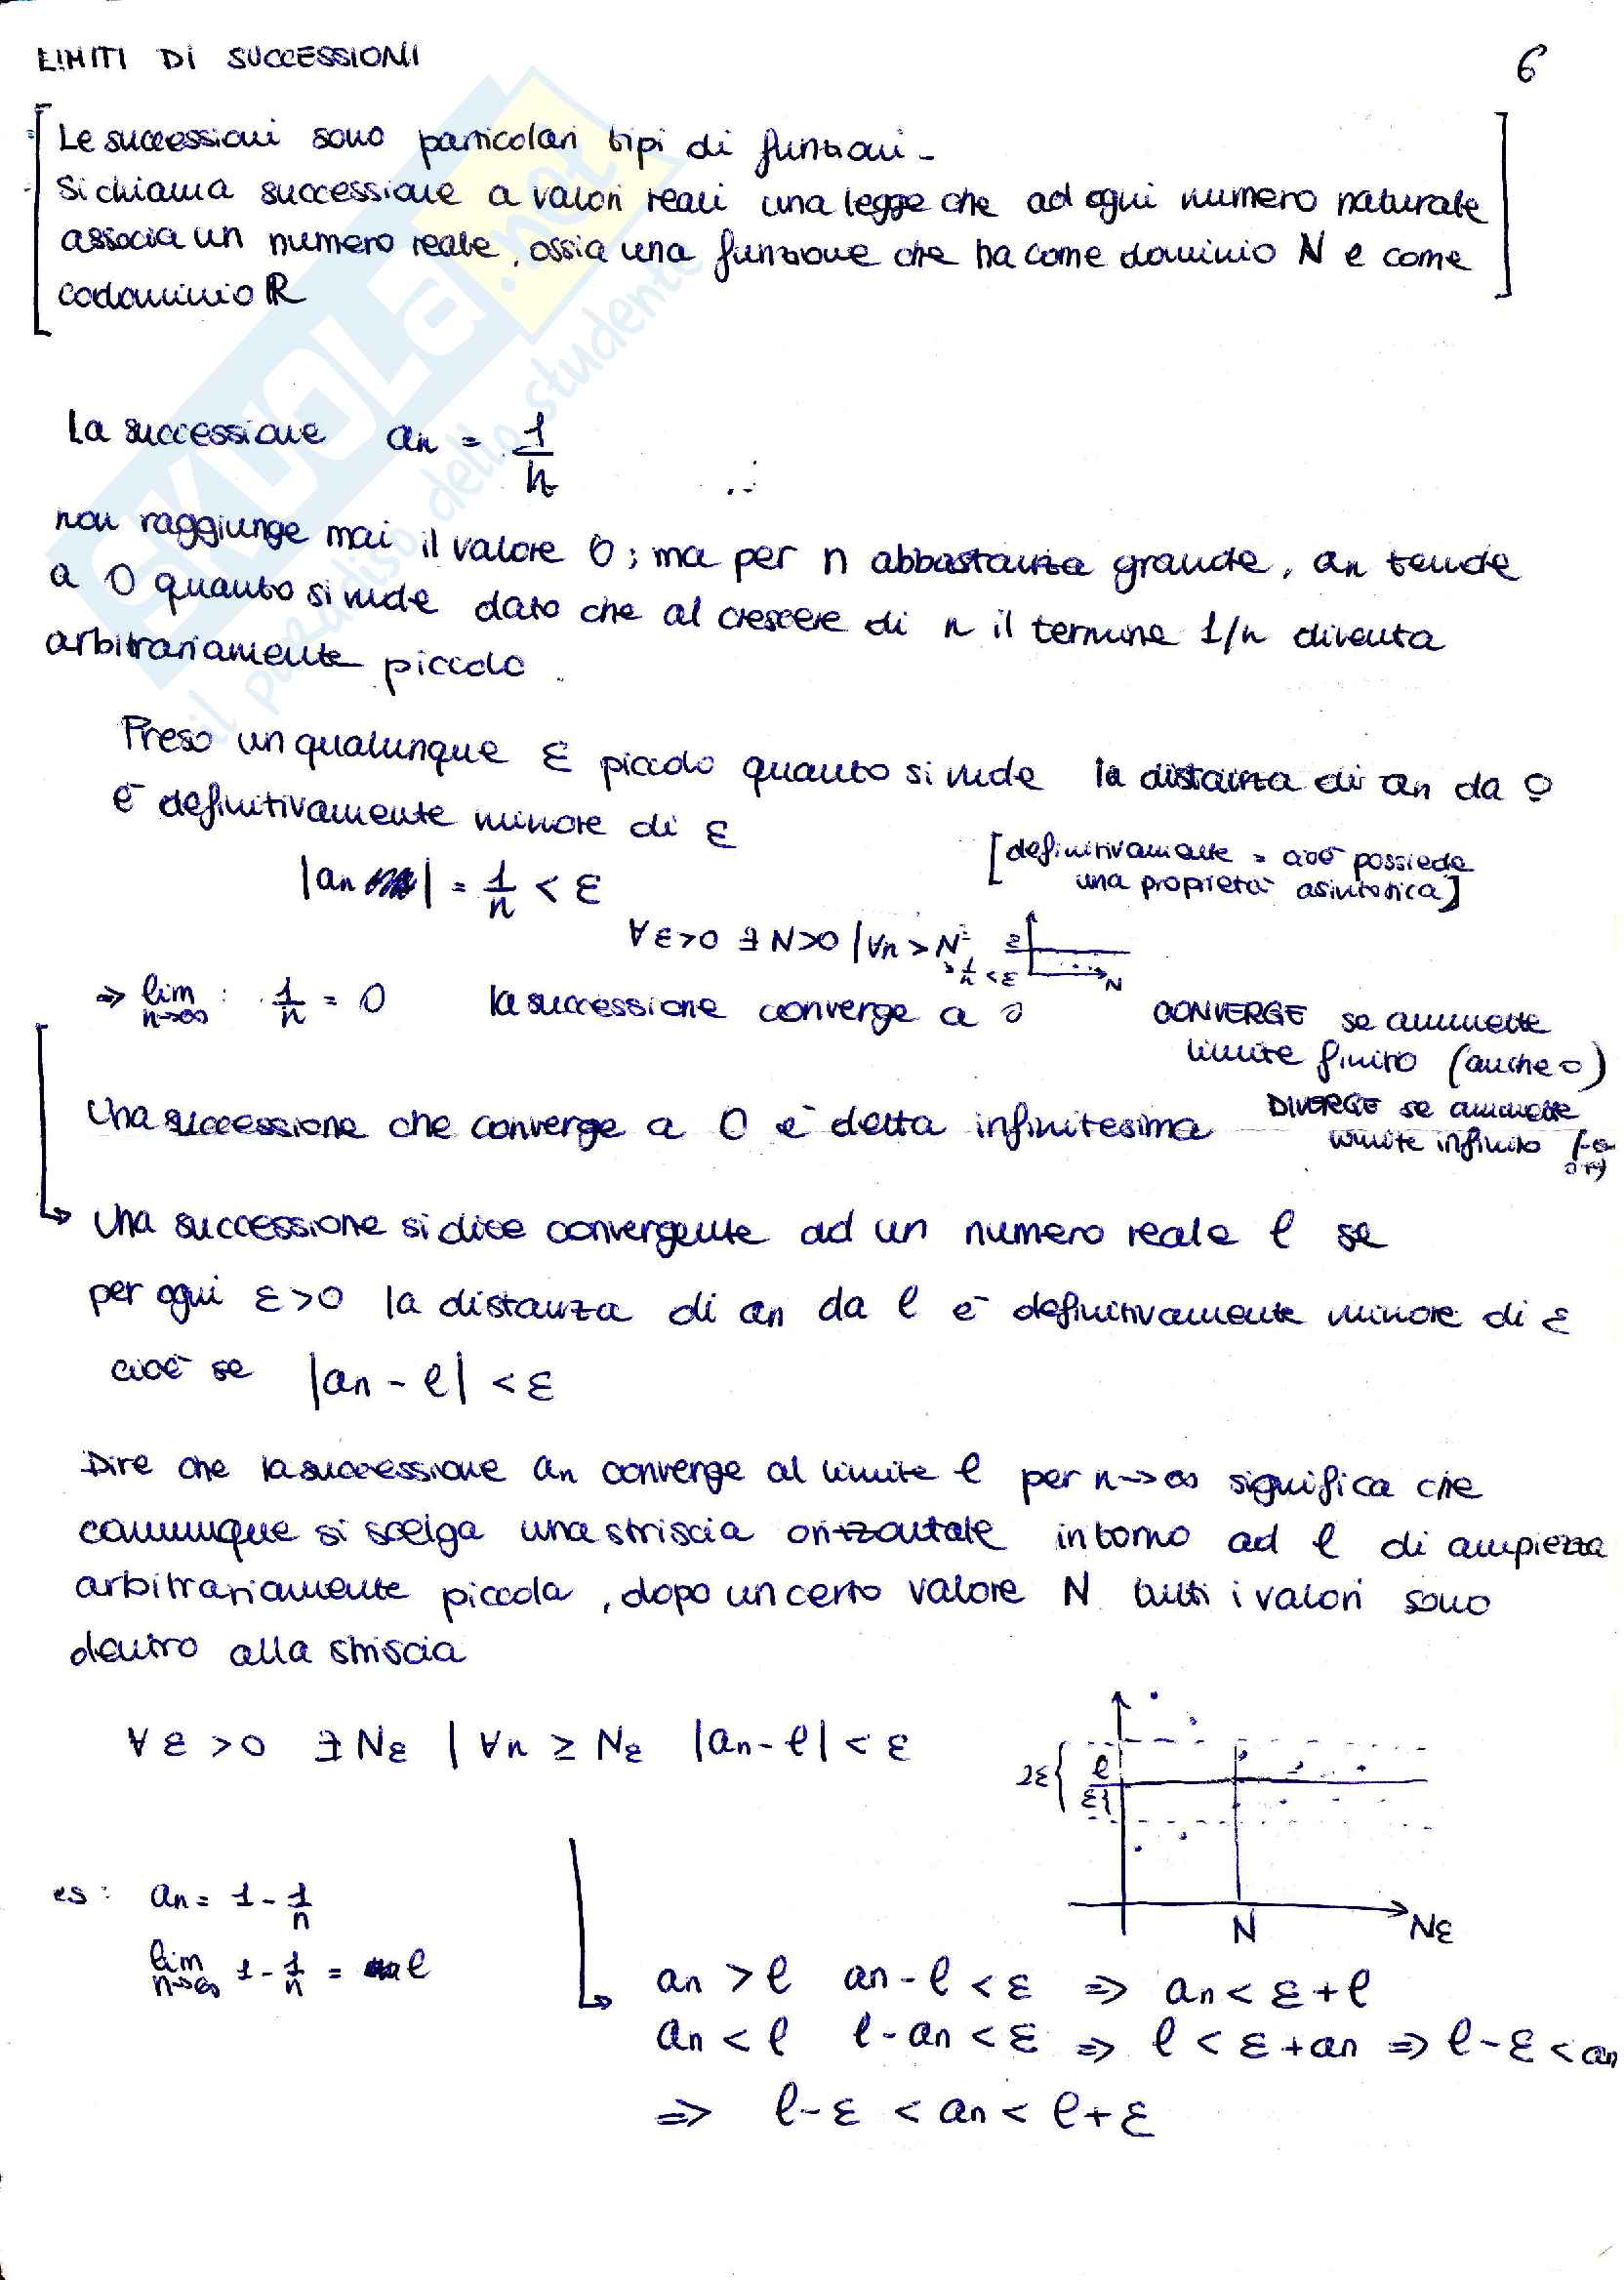 LIMITI DI SUCCESSIONI
6
Le successioni sono particolari tipi di funzioni.
Si chiama successione a valori reali una legge che ad ogni numero naturale
associa un numero reale, ossia una funzione che ha come dominio N e come
codominio ℝ
La successione an = 1/n
non raggiunge mai il valore 0; ma per n abbastanza grande, an tende
a 0 quanto si vuole dato che al crescere di n il termine 1/n diventa
arbitrariamente piccolo.
Preso un qualunque ε piccolo quanto si vuole la distanza di an da 0
è definitivamente minore di ε
[definitivamente = cioè possiede
una proprietà asintotica]
|an| = 1/n < ε
∀ε>0 ∃ N>0 | ∀n > N
1/n < ε
ε
N
⇒ lim n→∞ : 1/n = 0 la successione converge a 0
CONVERGE se ammette
limite finito (anche 0)
Una successione che converge a 0 è detta infinitesima
DIVERGE se ammette
limite infinito
Una successione si dice convergente ad un numero reale ℓ se
per ogni ε>0 la distanza di an da ℓ è definitivamente minore di ε
cioè se |an - ℓ| < ε
Dire che la successione an converge al limite ℓ per n→∞ significa che
comunque si scelga una striscia orizzontale intorno ad ℓ di ampiezza
arbitrariamente piccola, dopo un certo valore N tutti i valori sono
dentro alla striscia
∀ ε > 0 ∃ Nε | ∀n ≥ Nε |an - ℓ| < ε
2ε { ℓ
ε{
N
Nε
es: an = 1 - 1/n
lim n→∞ 1 - 1/n = ℓ
an > ℓ an - ℓ < ε ⇒ an < ε + ℓ
an < ℓ ℓ - an < ε ⇒ ℓ < ε + an ⇒ ℓ - ε < an
⇒ ℓ - ε < an < ℓ + ε
SKUOLA.net
il paradiso dello studente